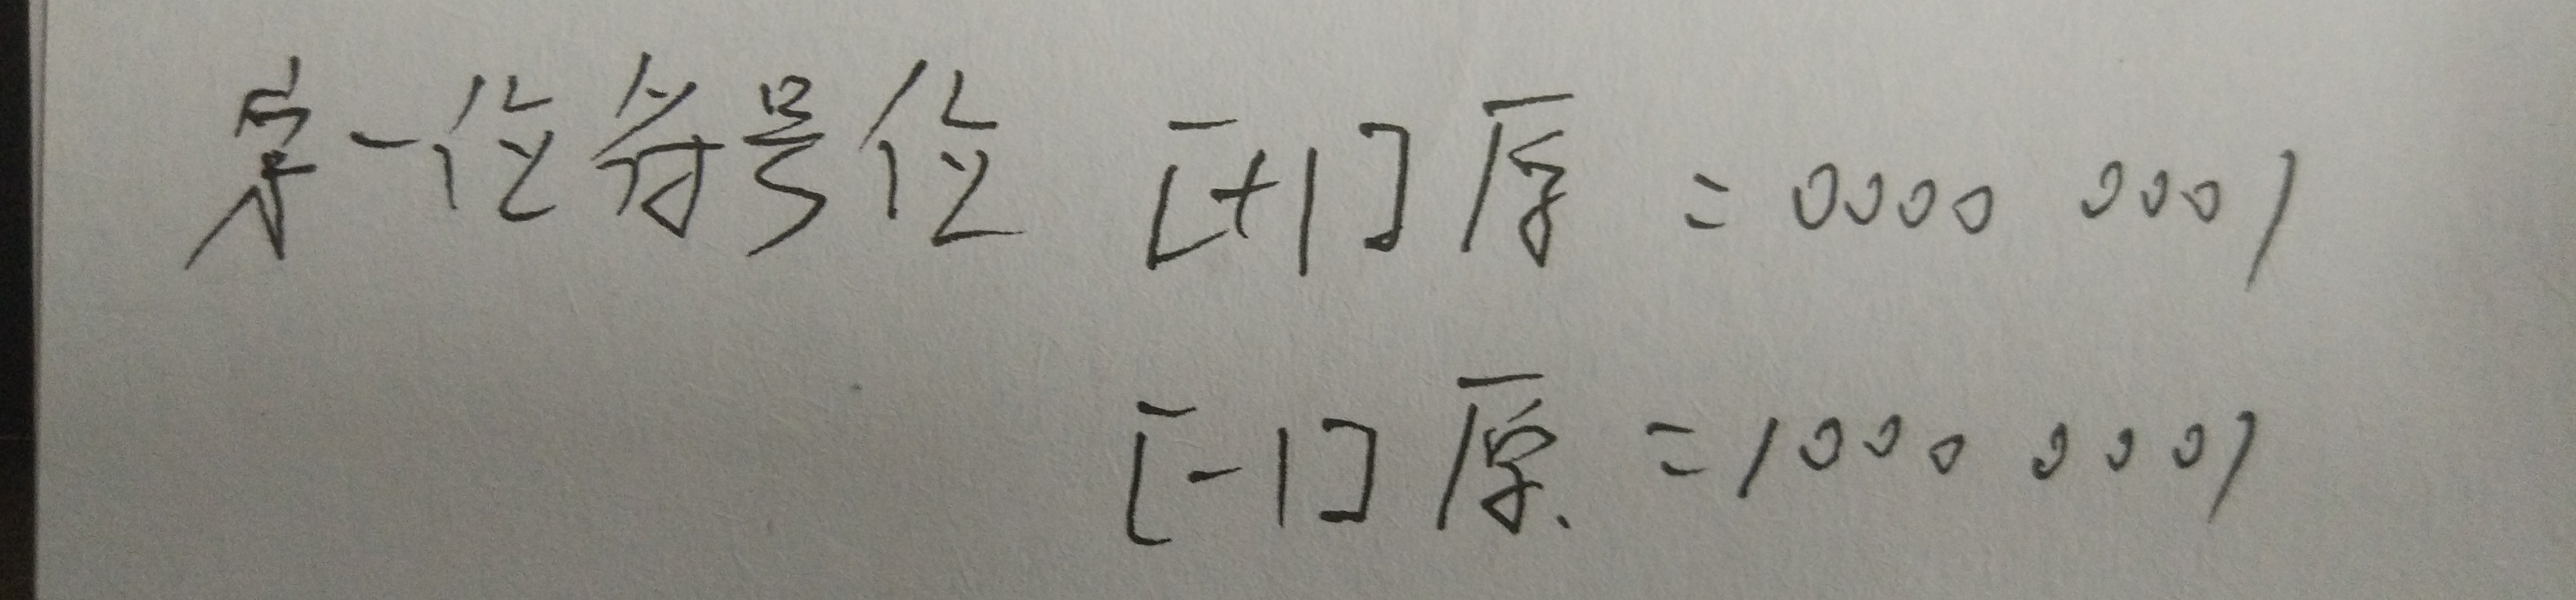 第一位符号位 [+1]原 = 0000 0001
[-1]原. = 1000 0001